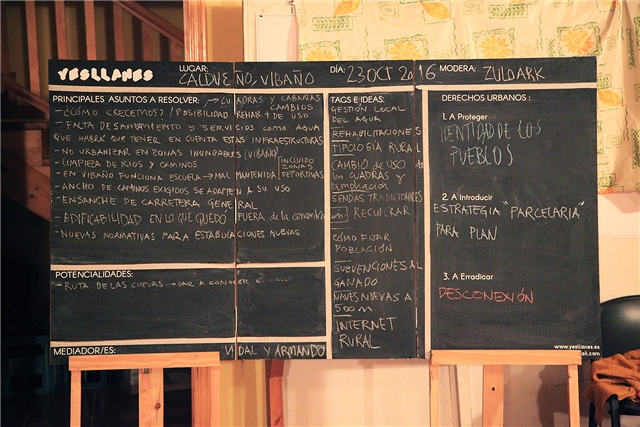 YESLLANES
LUGAR:
CALDUEÑO, VIBAÑO
DÍA: 23 OCT 2016
MODERA: ZULOARK
PRINCIPALES ASUNTOS A RESOLVER:
CUADRAS Y CABAÑAS
- ¿CÓMO CRECEMOS? / POSIBILIDAD REHAB. + CAMBIOS DE USO
- FALTA DE SANEAMIENTO Y SERVICIOS COMO AGUA
QUE HABRÁ QUE TENER EN CUENTA ESTAS INFRAESTRUCTURAS
- NO URBANIZAR EN ZONAS INUNDABLES (VIBAÑO)
- LIMPIEZA DE RIOS Y CAMINOS
- EN VIBAÑO FUNCIONA ESCUELA → MAL MANTENIDA
INCLUIDO ZONAS DEPORTIVAS
- ANCHO DE CAMINOS EXIGIDOS SE ADAPTEN A SU USO
- ENSANCHE DE CARRETERA GENERAL
- EDIFICABILIDAD EN LO QUE QUEDÓ FUERA de la
- NUEVAS NORMATIVAS PARA ESTABULACIONES NUEVAS
POTENCIALIDADES:
- RUTA DE LAS CUEVAS → DAR A CONOCER
MEDIADOR/ES: VIDAL Y ARMANDO
TAGS E IDEAS:
GESTIÓN LOCAL
DEL AGUA
REHABILITACIONES
TIPOLOGÍA RURAL
CAMBIO de USO DE
LAS CUADRAS Y
ampliación
SENDAS TRADICIONALES
RECUPERAR
CÓMO FIJAR
POBLACIÓN
SUBVENCIONES AL
GANADO
NAVES NUEVAS A
500 m
INTERNET
RURAL
DERECHOS URBANOS:
1. A Proteger
IDENTIDAD DE LOS
PUEBLOS
2. A Introducir
ESTRATEGIA "PARCELARIA"
PARA PLAN
3. A Erradicar
DESCONEXIÓN
www.yesllanes.es